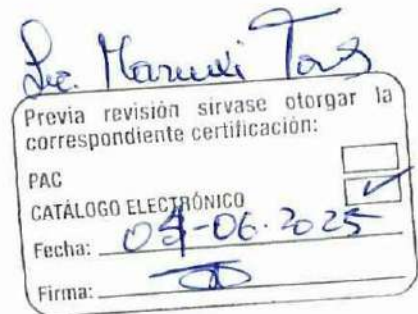 Lic.
Previa revisión sírvase otorgar la
correspondiente certificación:
PAC
CATÁLOGO ELECTRÓNICO ✓
Fecha: -06-2025
Firma: